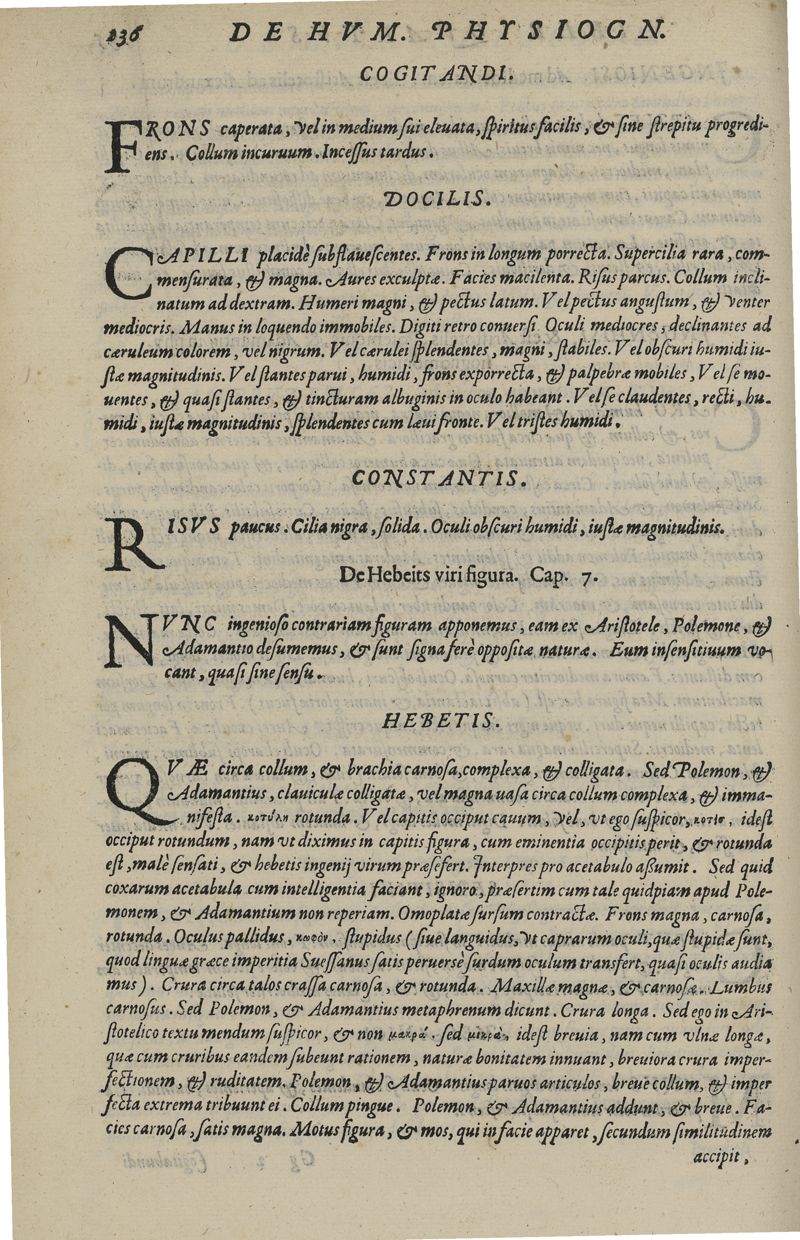 236 DE HVM. PHYSIOGN.
COGITANDI.
FRONS caperata, vel in medium sui eleuata, spiritus facilis, & sine strepitu progredi-
ens. Collum incuruum. Incessus tardus.
DOCILIS.
CAPILLI placidè subflauescentes. Frons in longum porrecta. Supercilia rara, com-
mensurata, & magna. Aures exculptæ. Facies macilenta. Risus parcus. Collum incli-
natum ad dextram. Humeri magni, & pectus latum. Vel pectus angustum, & venter
mediocris. Manus in loquendo immobiles. Digiti retro conuersi. Oculi mediocres, declinantes ad
cæruleum colorem, vel nigrum. Vel cærulei splendentes, magni, stabiles. Vel obscuri humidi iu-
stæ magnitudinis. Vel stantes parui, humidi, frons exporrecta, & palpebræ mobiles, Vel se mo-
uentes, & quasi stantes, & tincturam albuginis in oculo habeant. Vel se claudentes, recti, hu-
midi, iustæ magnitudinis, splendentes cum læui fronte. Vel tristes humidi.
CONSTANTIS.
RISVS paucus. Cilia nigra, solida. Oculi obscuri humidi, iustæ magnitudinis.
De Hebeits viri figura. Cap. 7.
NVNC ingenioso contrariam figuram apponemus, eam ex Aristotele, Polemone, &
Adamantio desumemus, & sunt signa ferè oppositæ naturæ. Eum insensitiuum vo-
cant, quasi sine sensu.
HEBETIS.
QVÆ circa collum, & brachia carnosa, complexa, & colligata. Sed Polemon, &
Adamantius, clauiculæ colligatæ, vel magna uasa circa collum complexa, & imma-
nifesta. κοτύλη rotunda. Vel capitis occiput cauum, vel, vt ego suspicor, κοτὶσ, idest
occiput rotundum, nam vt diximus in capitis figura, cum eminentia occipitis perit, & rotunda
est, malè sensati, & hebetis ingenij virum præsefert. Interpres pro acetabulo aßumit. Sed quid
coxarum acetabula cum intelligentia faciant, ignoro, præsertim cum tale quidpiam apud Pole-
monem, & Adamantium non reperiam. Omoplatæ sursum contractæ. Frons magna, carnosa,
rotunda. Oculus pallidus, κωφὸν, stupidus (siue languidus, vt caprarum oculi, quæ stupidæ sunt,
quod linguæ græce imperitia Suessanus satis peruersè surdum oculum transfert, quasi oculis audia
mus). Crura circa talos crassa carnosa, & rotunda. Maxillæ magnæ, & carnosæ. Lumbus
carnosus. Sed Polemon, & Adamantius metaphrenum dicunt. Crura longa. Sed ego in Ari-
stotelico textu mendum suspicor, & non μακρὰ, sed μικρὰ, idest breuia, nam cum vlnæ longæ,
quæ cum cruribus eandem subeunt rationem, naturæ bonitatem innuant, breuiora crura imper-
fectionem, & ruditatem. Polemon, & Adamantius paruos articulos, breue collum, & imper
fecta extrema tribuunt ei. Collum pingue. Polemon, & Adamantius addunt, & breue. Fa-
cies carnosa, satis magna. Motus figura, & mos, qui in facie apparet, secundum similitudinem
accipit,